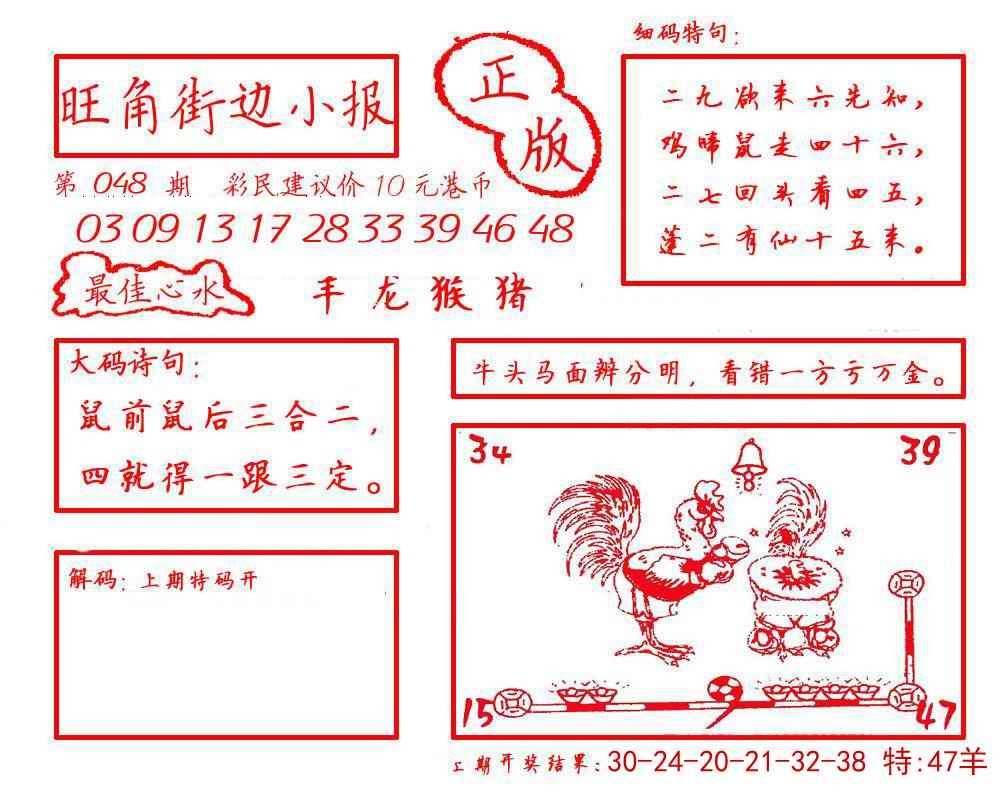 旺角街边小报
正版
第 048 期 彩民建议价10元港币
03 09 13 17 28 33 39 46 48
最佳心水
羊 龙 猴 猪
细码特句:
二九欲来六先知,
鸡啼鼠走四十六,
二七回头看四五,
蓬二有仙十五来。
大码诗句:
鼠前鼠后三合二,
四就得一跟三定。
牛头马面辨分明,看错一方亏万金。
解码:上期特码开
34
39
8
15
47
上期开奖结果:30-24-20-21-32-38 特:47羊